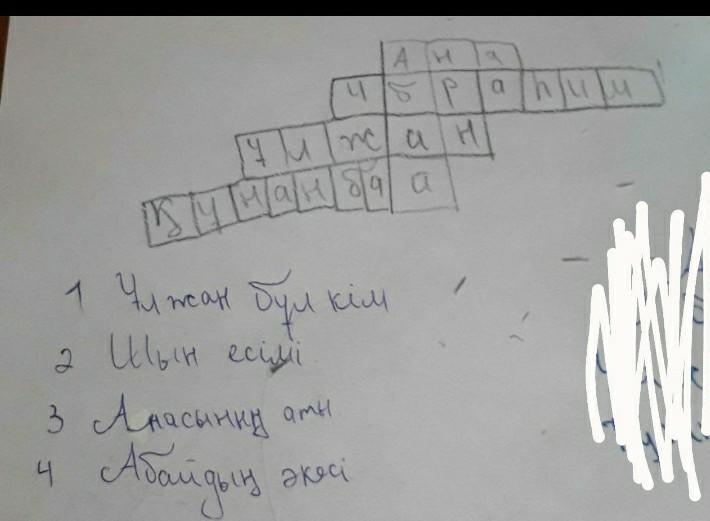 Ана
Ибраһим
Ұлжан
Құнанбаа
1 Ұлжан бұл кім
2 Шын есімі
3 Анасының аты
4 Абайдың әкесі